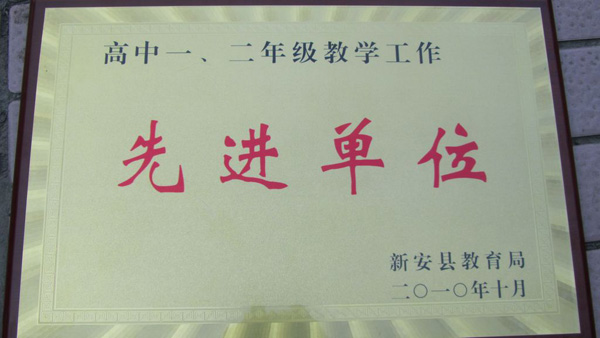 高中一、二年级教学工作
先进单位
新安县教育局
二〇一〇年十月